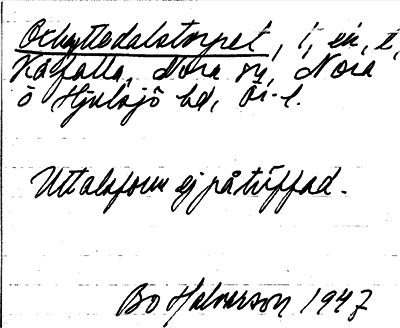 Oxhyttedalstorpet, t, en, t,
Kålfalla, Nora sn, Nora
o Hjulsjö bd, Ör. l.
Uttalsform ej påträffad.
Bo Halvarson 1947